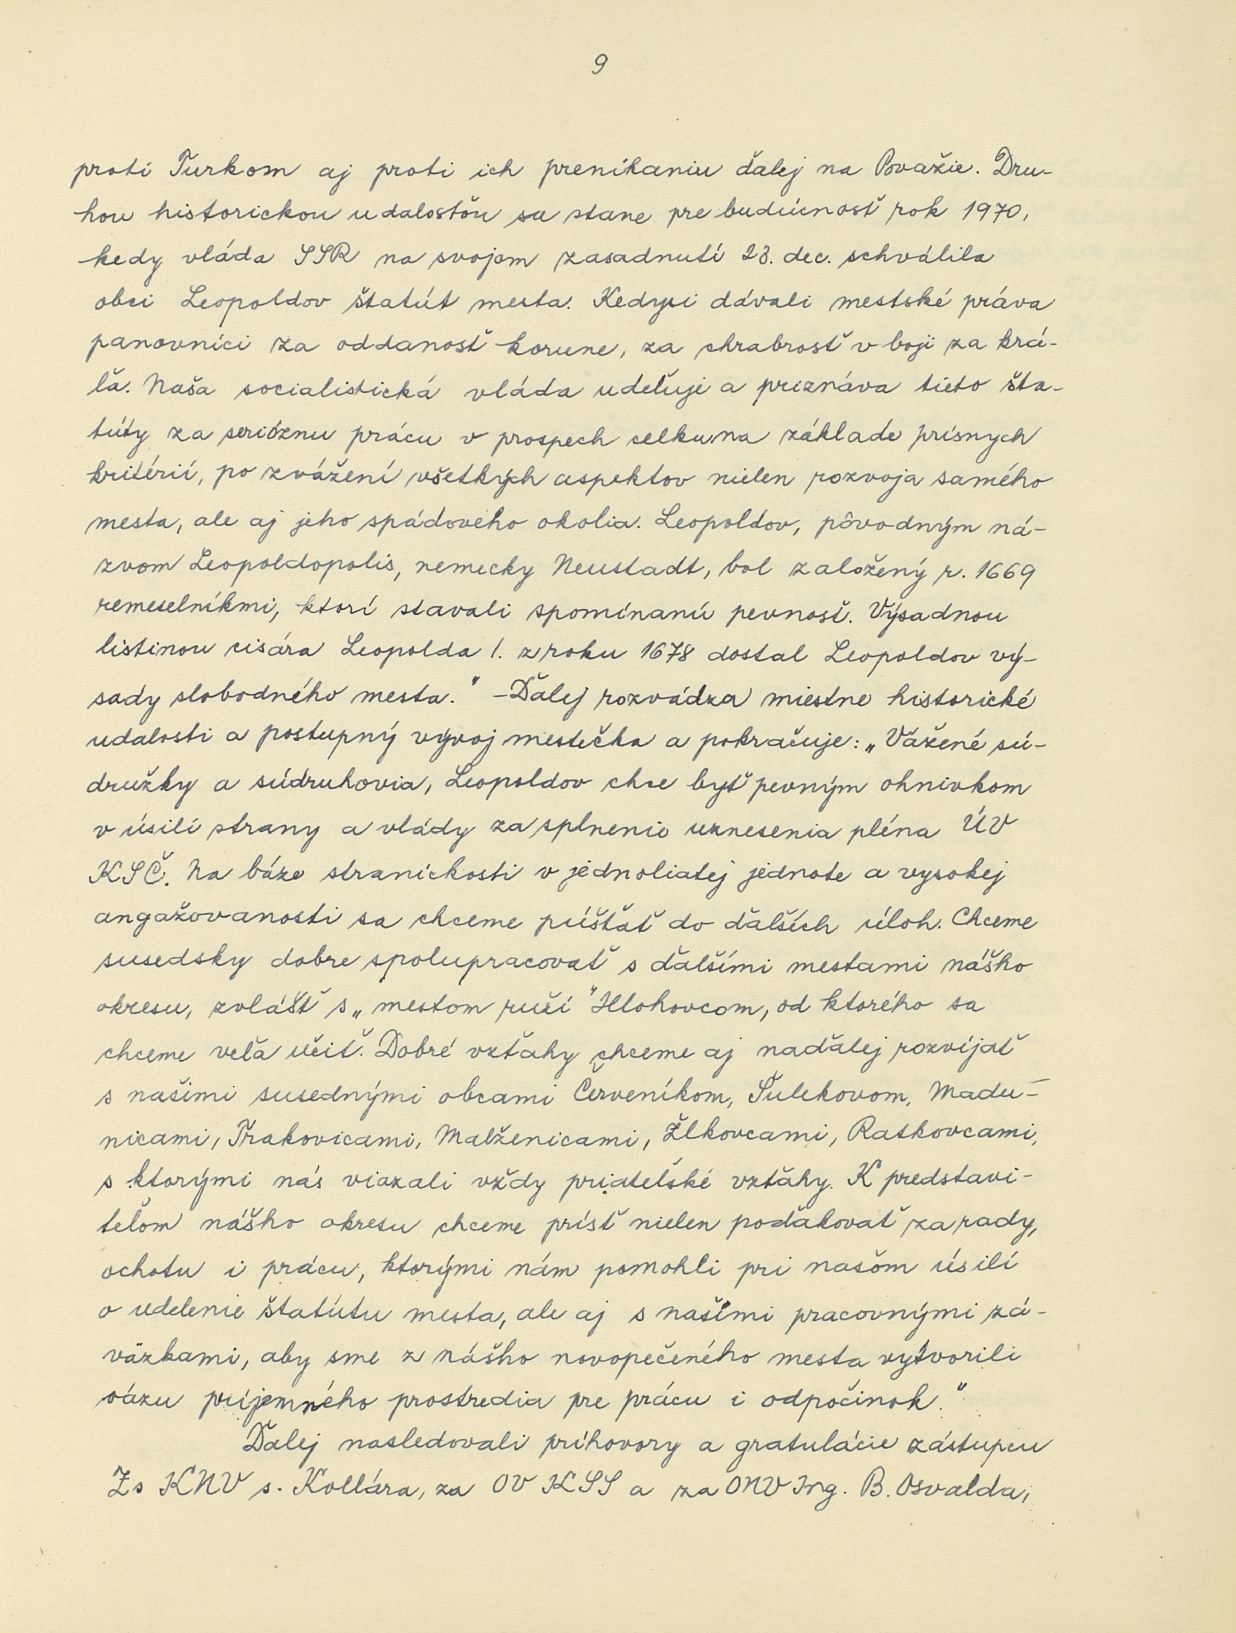 9
proti Turkom aj proti ich prenikaniu ďalej na Považie. Dru-
hou historickou udalosťou sa stane pre budúcnosť rok 1970,
kedy vláda SSR na svojom zasadnutí 23. dec. schválila
obci Leopoldov štatút mesta. Kedysi dávali mestské práva
panovníci za oddanosť korune, za chrabrosť v boji za krá-
ľa. Naša socialistická vláda udeľuje a priznáva tieto šta-
túty za serióznu prácu v prospech celku na základe prísnych
kritérií, po zvážení všetkých aspektov nielen rozvoja samého
mesta, ale aj jeho spádového okolia. Leopoldov, pôvodným ná-
zvom Leopoldopolis, nemecky Neustadt, bol založený r. 1669
remeselníkmi, ktorí stavali spomínanú pevnosť. Výsadnou
listinou cisára Leopolda I. z roku 1678 dostal Leopoldov vý-
sady slobodného mesta." – Ďalej rozvádza miestne historické
udalosti a postupný vývoj mestečka a pokračuje: „Vážené sú-
družky a súdruhovia, Leopoldov chce byť pevným ohnivkom
v úsilí strany a vlády za splnenie uznesenia pléna ÚV
KSČ. Na báze straníckosti v jednoliatej jednote a vysokej
angažovanosti sa chceme púšťať do ďalších úloh. Chceme
susedsky dobre spolupracovať s ďalšími mestami nášho
okresu, zvlášť s „mestom ruží" Hlohovcom, od ktorého sa
chceme veľa učiť. Dobré vzťahy chceme aj naďalej rozvíjať
s našimi susednými obcami Červeníkom, Šulekovom, Madu-
nicami, Trakovicami, Malženicami, Žlkovcami, Ratkovcami,
s ktorými nás viazali vždy priateľské vzťahy. K predstavi-
teľom nášho okresu chceme prísť nielen poďakovať za rady,
ochotu i prácu, ktorými nám pomohli pri našom úsilí
o udelenie štatútu mesta, ale aj s našimi pracovnými zá-
väzkami, aby sme z nášho novopečeného mesta vytvorili
oázu príjemného prostredia pre prácu i odpočinok."
Ďalej nasledovali príhovory a gratulácie zástupcu
Zs KNV s. Kollára, za OV KSS a za ONV Ing. B. Osvalda,